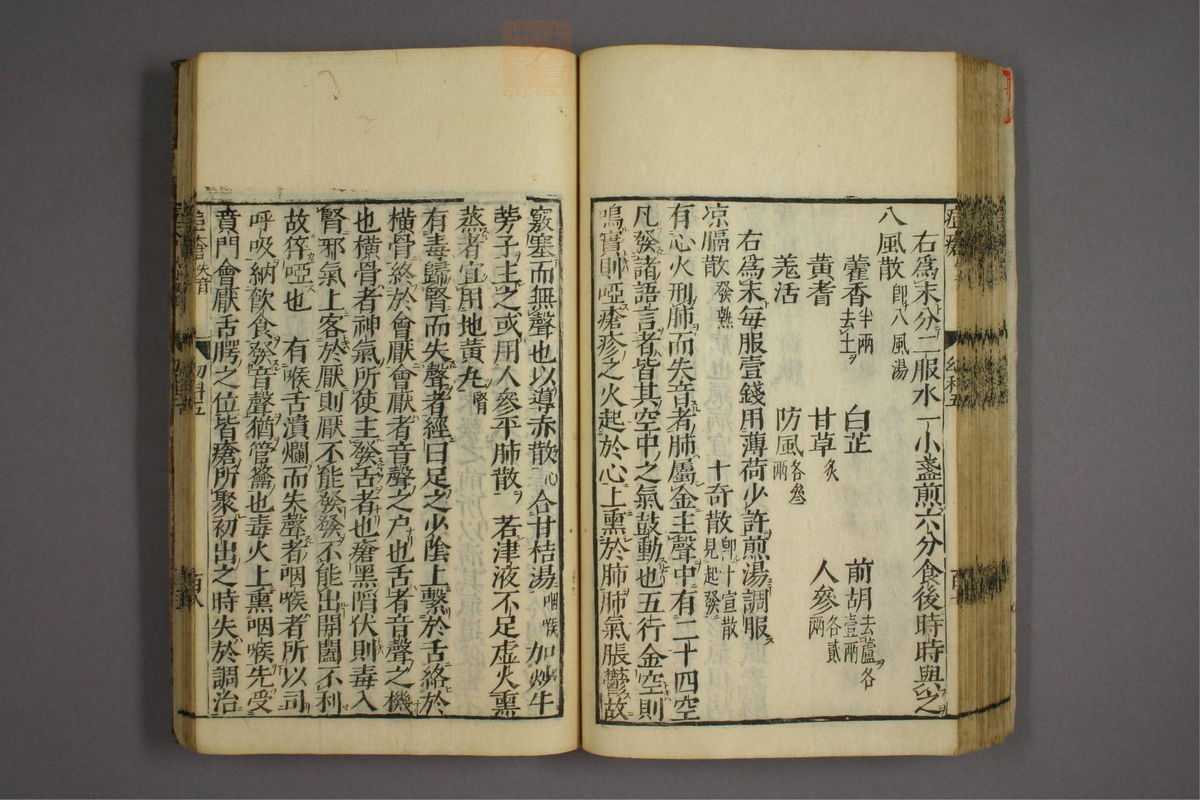 右爲末分二服水一小盞煎六分食後時時與之
八風散 卽八風湯
藿香半兩去土 白芷 前胡去蘆各壹兩
黃耆 甘草炙 人參各貳兩
羗活 防風各叄兩
右爲末每服壹錢用薄荷少許煎湯調服
凉膈散發熱 十奇散卽十宣散見起發
有心火刑肺而失音者肺屬金主聲中有二十四空
凡發諸語言者皆其空中之氣鼓動也五行金空則
鳴實則啞瘡疹之火起於心上熏於肺肺氣脹鬱故
竅塞而無聲也以導赤散心合甘桔湯咽喉加炒牛
蒡子主之或用人參平肺散 若津液不足虛火熏
蒸者宜用地黃丸腎
有毒歸腎而失聲者經曰足之少陰上繫於舌絡於
橫骨終於會厭會厭者音聲之户也舌者音聲之機
也橫骨者神氣所使主發舌者也瘡黑陷伏則毒入
腎邪氣上客於厭則厭不能發發不能出開闔不利
故猝啞也 有喉舌潰爛而失聲者咽喉者所以司
呼吸納飲食發音聲猶管籥也毒火上熏咽喉先受
賁門會厭舌腭之位皆瘡所聚初出之時失於調治
失音